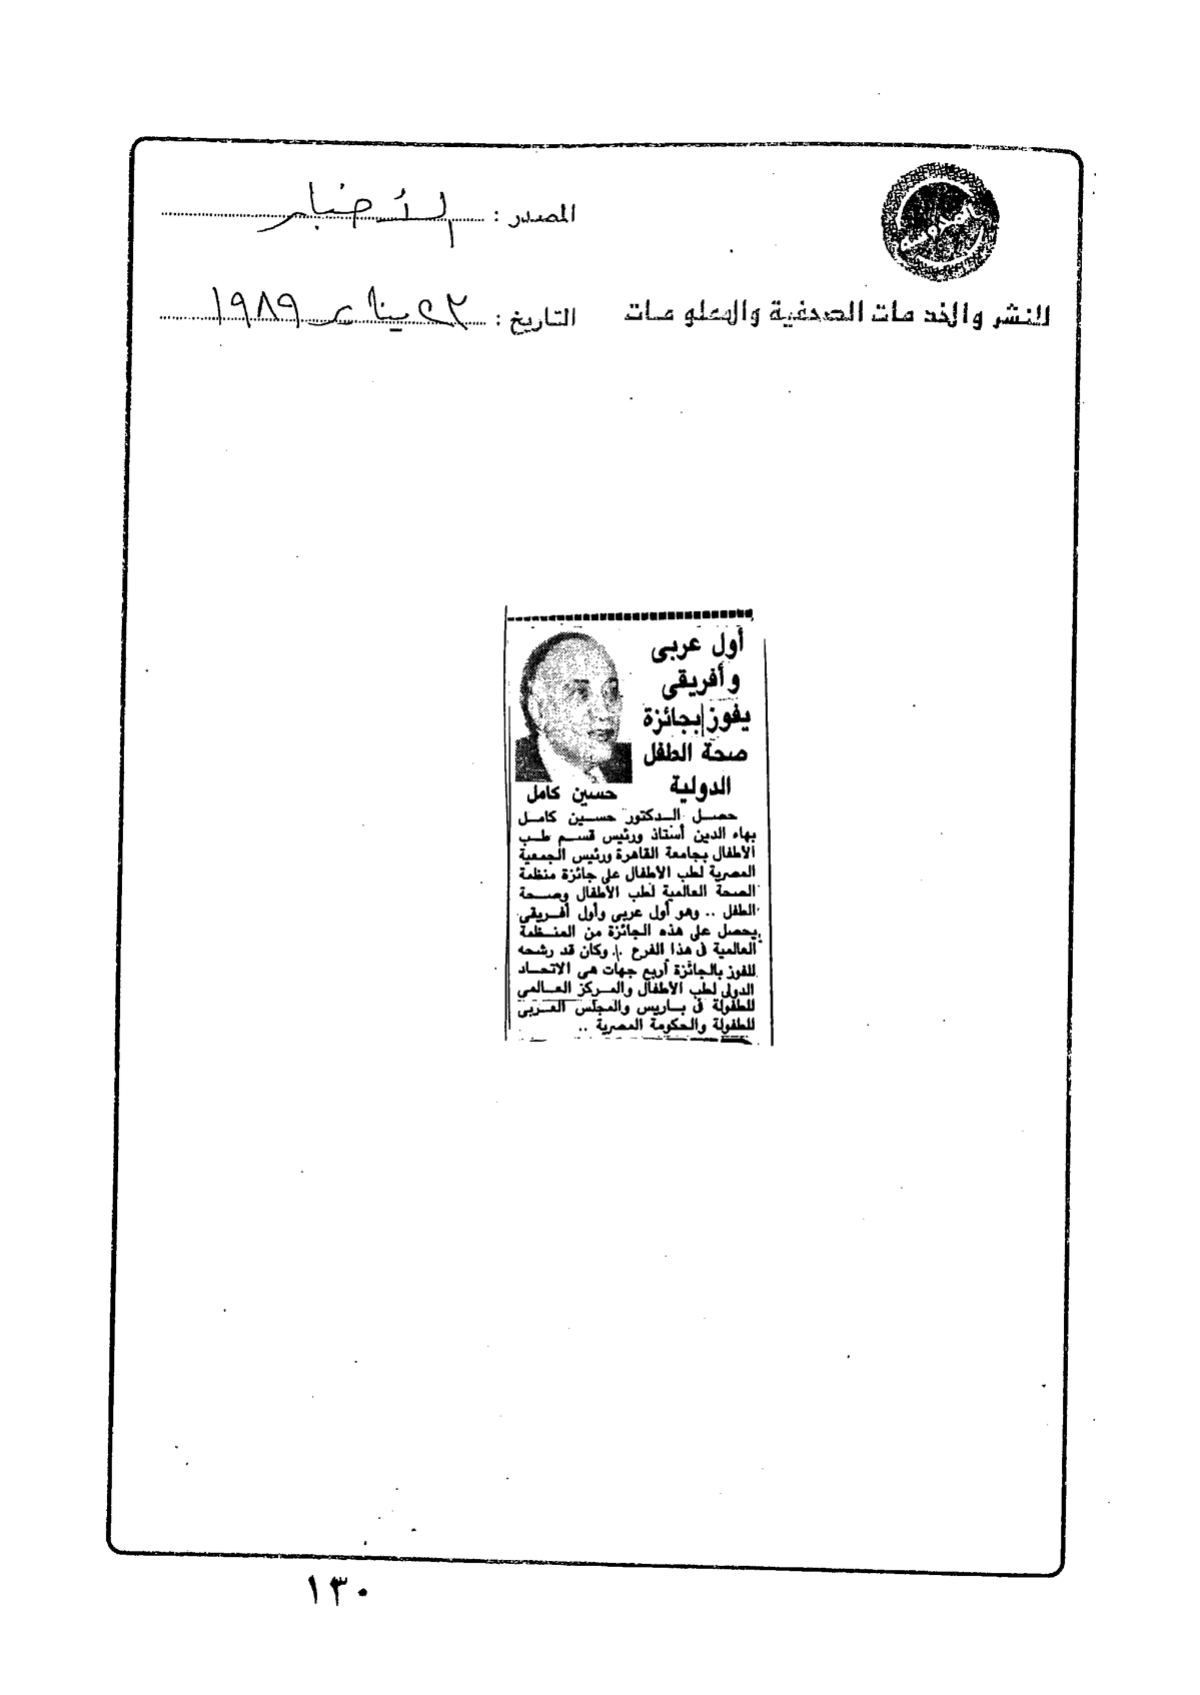 المصدر : الأخبار
للنشر والخدمات الصحفية والمعلومات
التاريخ : ٢٢ يناير ١٩٨٩
أول عربى
وأفريقى
يفوز بجائزة
صحة الطفل
الدولية
حسين كامل
حصل الدكتور حسين كامل
بهاء الدين أستاذ ورئيس قسم طب
الأطفال بجامعة القاهرة ورئيس الجمعية
المصرية لطب الأطفال على جائزة منظمة
الصحة العالمية لطب الأطفال وصحة
الطفل .. وهو أول عربى وأول أفريقى
يحصل على هذه الجائزة من المنظمة
العالمية فى هذا الفرع .. وكان قد رشحه
للفوز بالجائزة أربع جهات هى الاتحاد
الدولى لطب الأطفال والمركز العالمى
للطفولة فى باريس والمجلس العربى
للطفولة والحكومة المصرية ..
١٣٠